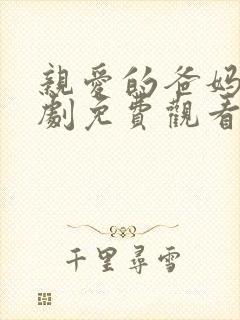 親愛的爸媽
劇免費觀看
千里尋雪